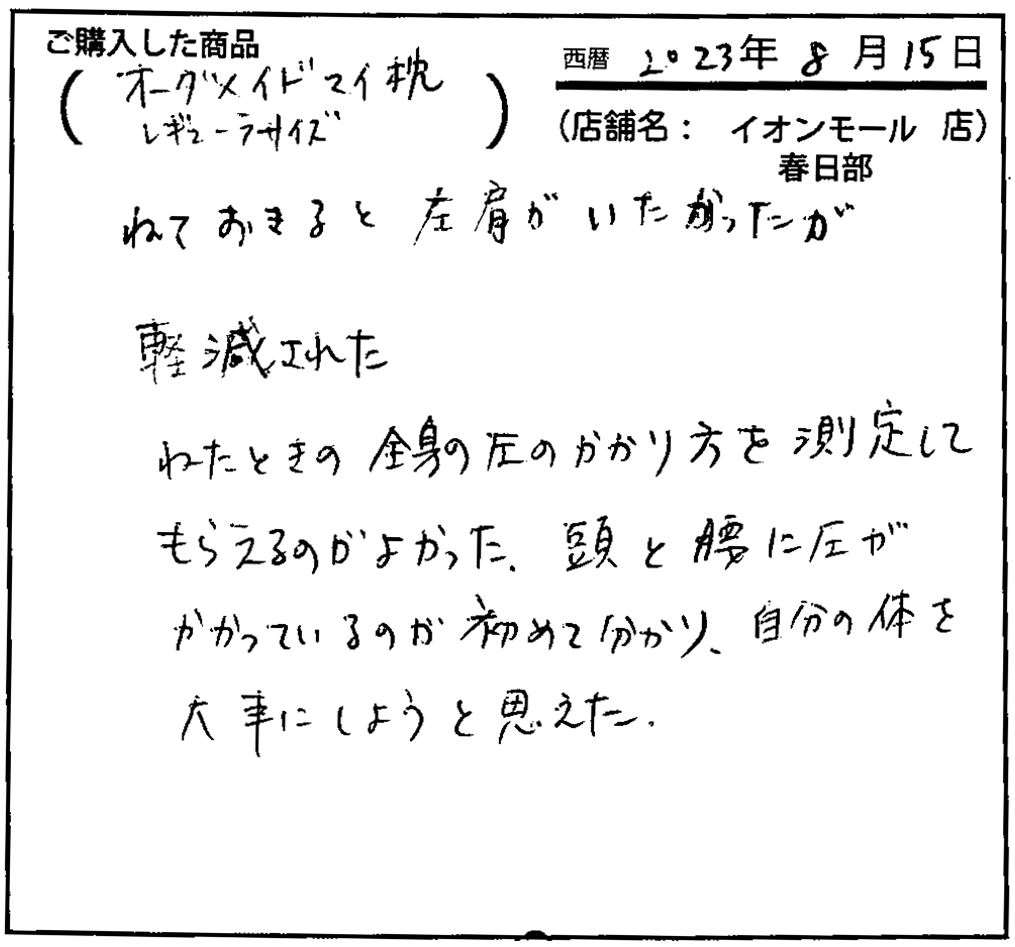 ご購入した商品
(オーダメイドマイ枕
レギューラサイズ)
西暦 2023年 8月15日
(店舗名: イオンモール 店)
春日部
ねておきると左肩がいたかったが
軽減された
ねたときの全身の圧のかかり方を測定して
もらえるのがよかった。頭と腰に圧が
かかっているのが初めて分かり、自分の体を
大事にしようと思えた.